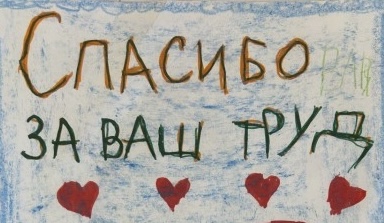 СПАСИБО
ЗА ВАШ ТРУД